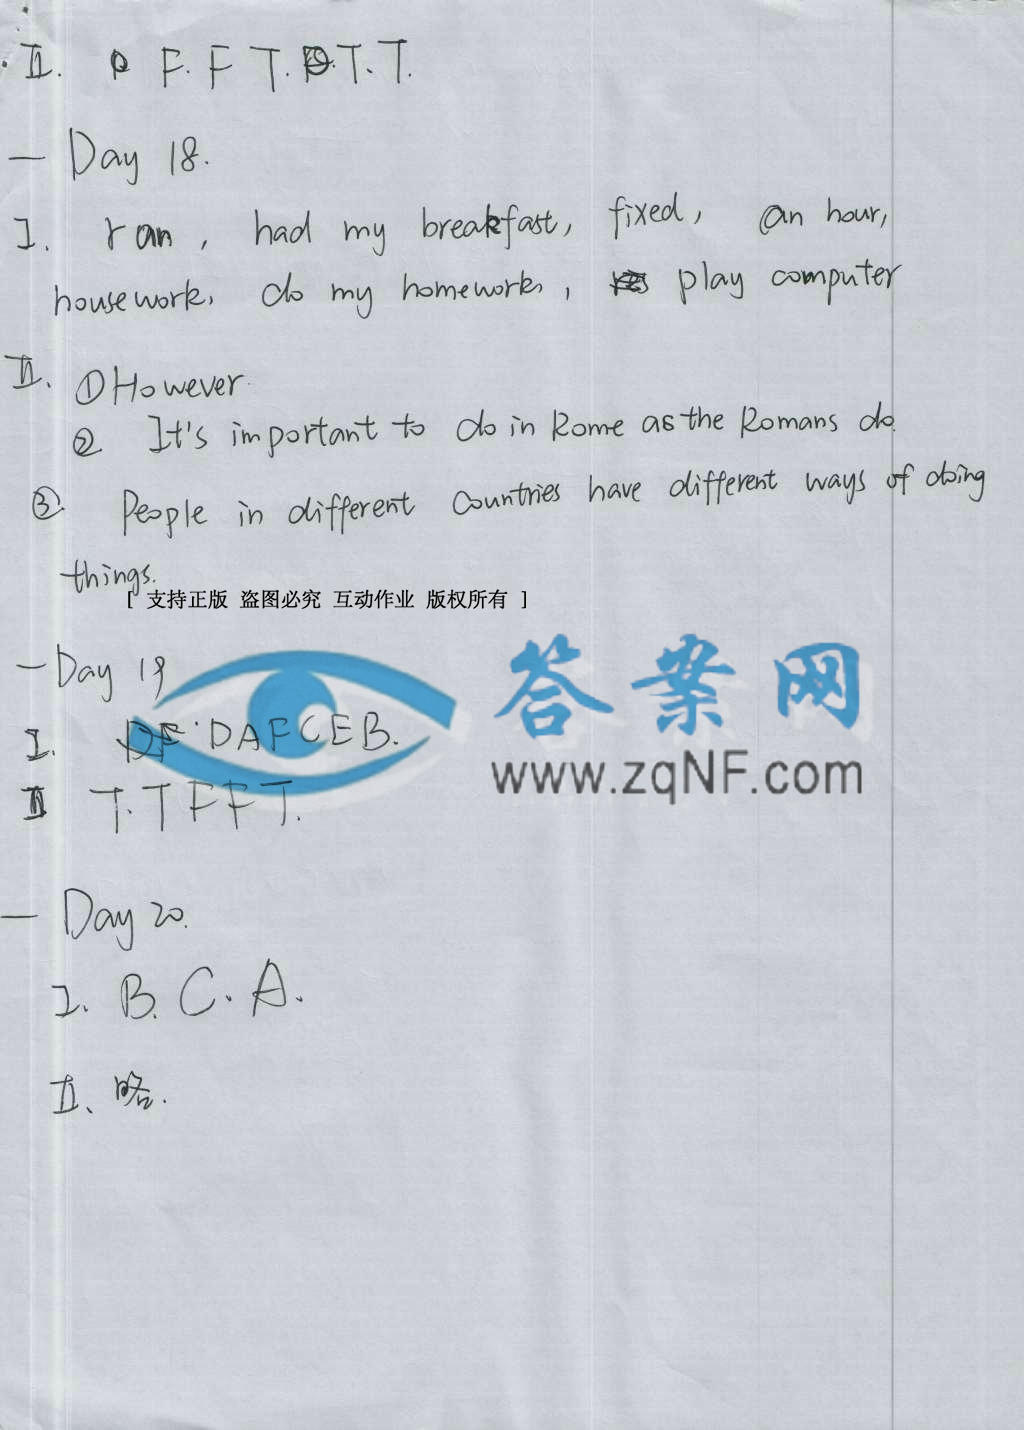 II. F. F T. T. T.
— Day 18.
I. ran, had my breakfast, fixed, an hour,
housework, do my homework, play computer
II. ①However.
② It's important to do in Rome as the Romans do.
③. People in different countries have different ways of doing
things.
[ 支持正版 盗图必究 互动作业 版权所有 ]
— Day 19
答案网
I. DAFCEB.
www.zqNF.com
II T. T F F T.
— Day 20.
I. B. C. A.
II、略.